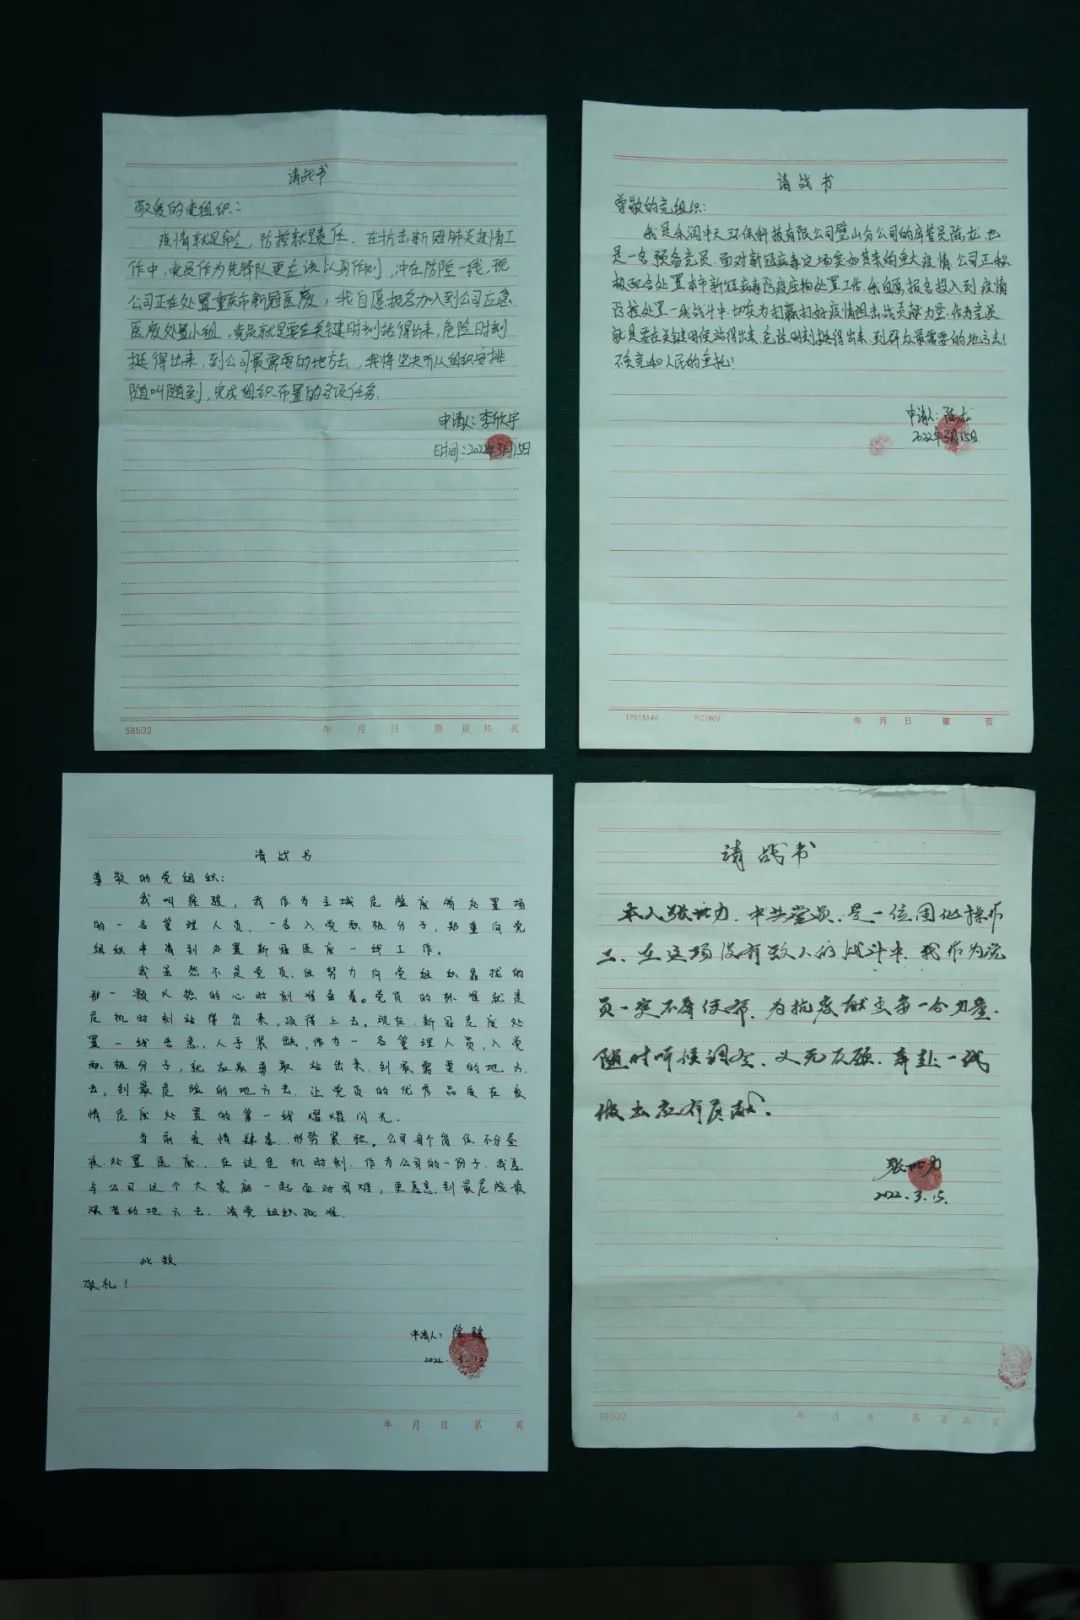 请战书
敬爱的党组织：
疫情就是命令，防控就是责任。在抗击新冠肺炎疫情工
作中，党员作为先锋队更应该以身作则，冲在防控一线，现
公司正在处置重庆市新冠医废，我自愿报名加入到公司应急
医废处置小组，党员就是要在关键时刻站得出来，危险时刻
挺得出来，到公司最需要的地方去，我将坚决听从组织安排
随叫随到，完成组织布置的各项任务。
申请人：李欣宇
时间：2022年3月15日
SB502 年 月 日 第 页 共 页
请战书
尊敬的党组织：
我是永润中天环保科技有限公司璧山分公司的库管员陈龙，也
是一名预备党员，面对新冠病毒这场突如其来的重大疫情，公司正积
极配合处置本市新冠病毒防疫废物处置工作，我自愿报名投入到疫情
防控处置一线战斗中，切实为打赢打好疫情阻击战贡献力量，作为党员
就是要在关键时候站得出来，危险时刻挺得出来，到群众最需要的地方去！
不负党和人民的重托！
申请人：陈龙
2022年3月15日
17015146 PC1802 年 月 日 第 页
请战书
尊敬的党组织：
我叫徐骏，我作为主城危险废物处置场
的一名管理人员，一名入党积极分子，郑重向党
组织申请到处置新冠医废一线工作。
我虽然不是党员，但努力向党组织靠拢的
那一颗火热的心时刻准备着。党员的标准就是
危机时刻站得出来，顶得上去。现在，新冠危废处
置一线告急，人手紧缺，作为一名管理人员，入党
积极分子，就应该勇敢站出来，到最需要的地方
去，到最危险的地方去，让党员的优秀品质在疫
情危废处置的第一线熠熠闪光。
当前疫情肆虐，形势紧张。公司每个岗位不分昼
夜处置医废，在这危机时刻，作为公司的一份子，我愿
与公司这个大家庭一起面对困难，更愿意到最危险最
需要的地方去，请党组织批准。
此致
敬礼！
申请人：徐骏
2022.3.15
年 月 日 第 页
请战书
本人张世力，中共党员，是一位固化操作
工，在这场没有敌人的战斗中，我作为党
员一定不辱使命，为抗疫献出每一份力量，
随时听候调令，义无反顾，奔赴一线
做出应有贡献。
张世力
2022.3.15.
SB502 年 月 日 第 页 共 页